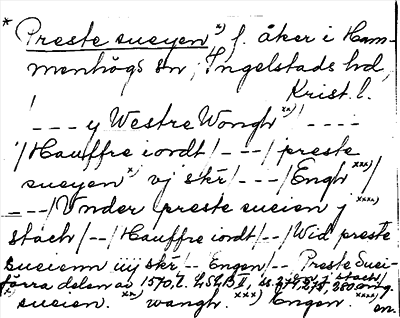 * Preste sueyen x) f. åker i Ham-
menhögs sn, Ingelstads hd,
Krist. l.
/ --- y Westre Wongh xx) / ----
/ Hauffre iordt / -- / preste
sueyen x) vj skr / -- / Engh xxx) /
--- / Vnder preste sueien j xxxx)
stach / -- / Hauffre iordt / -- / Wid preste
sueienn iiij skr / -- Engen / -- Preste Suei-
förra delen av 1570,
x) sueien. xx) wangh. xxx) Engen. xxxx) en.